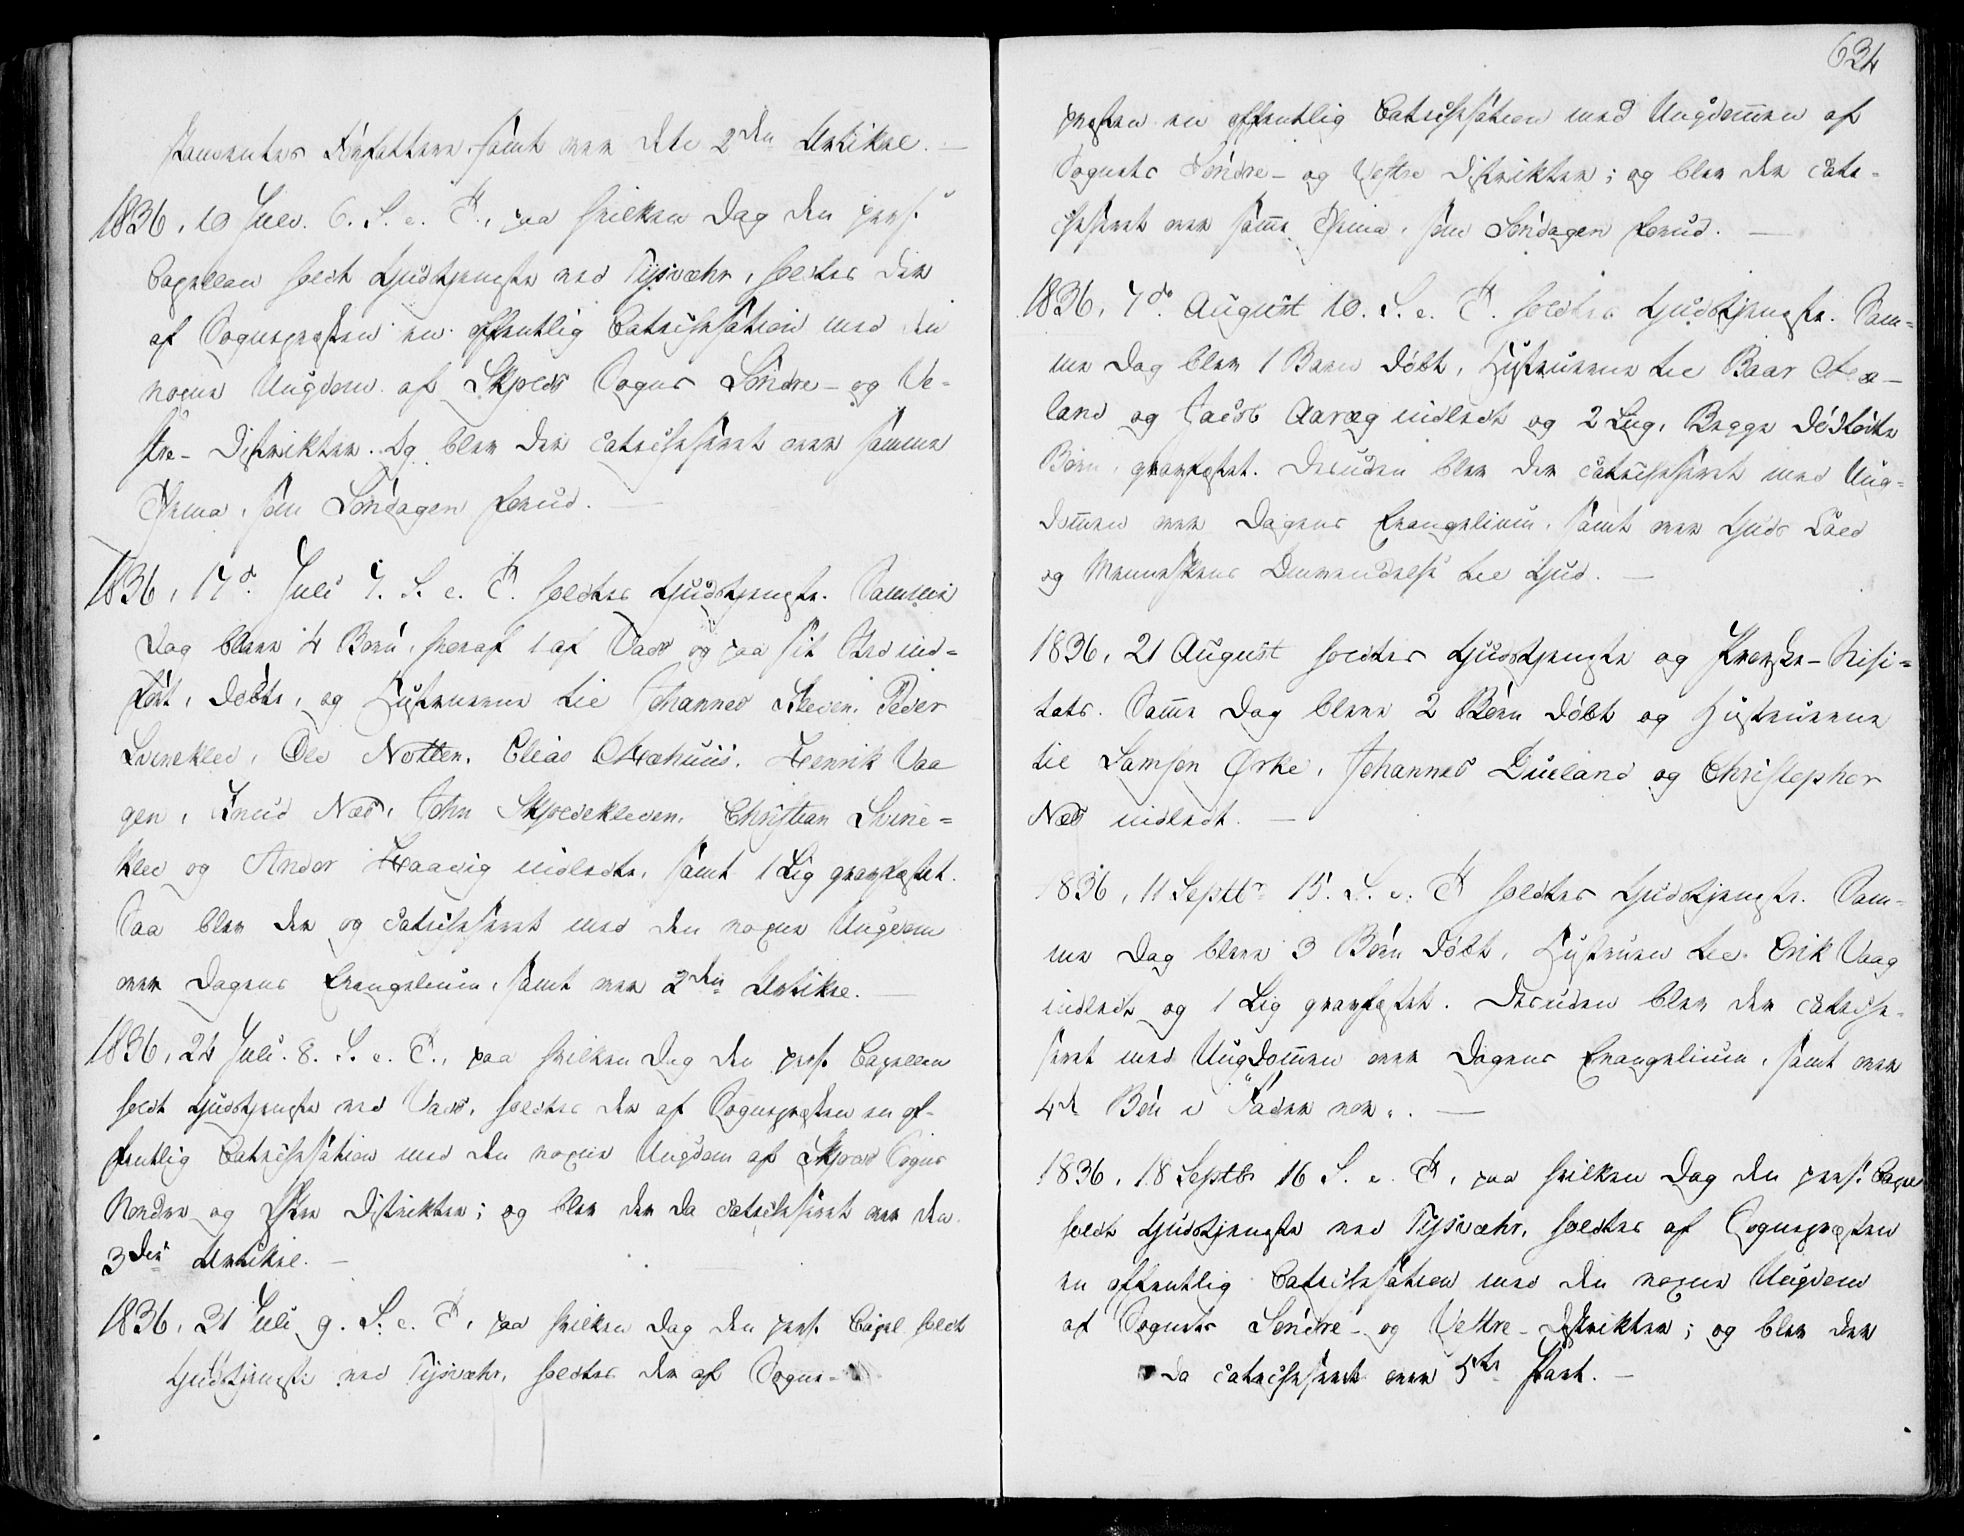 Forfattere samt over dets 2den Artikel. —
1836, 10 Juli. 6. S. e. T., paa hvilken Dag den pers.
Capellan holdt Gudstjeneste ved Tysvæhr, holdtes der
af Sognepræsten en offentlig Catechisation med den
nogne Ungdom af Skjolds Sogns Søndre- og Ve-
stre- Distrikter. Og blev der catechiseret over samme
Thema, som Søndagen forud. —
1836, 17d. Juli 7. S. e. T. holdtes Gudstjeneste. Samme
Dag bleve 4 Børn, heraf 1 af Vads og paa sit Sted ind-
ført, døbte, og Hustruerne til Johannes Kleven, Peder
Svineklev, Ole Notten, Elias Hahuus, Henrik Vaa
gen, Knud Næs, John Skjoldekleven, Christian Svine-
klev og Ander Haavig indledte, samt 1 Lig gravfæstet.
Saa blev der og catechiseret med den nogne Ungdom
over Dagens Evangelium, samt over 2den Artikel. —
1836, 24 Juli. 8. S. e. T., paa hvilken Dag den pers. Capellan
holdt Gudstjeneste ved Vads, holdtes der af Sognepræsten en of-
fentlig Catechisation med den nogne Ungdom af Skjolds Sogns
Nordre og Østre Distrikter; og blev der da catechiseret over den
3die Artikel. —
1836, 31 Juli 9. S. e. T, paa hvilken Dag den pers. Capel. holdt
Gudstjeneste ved Tysvæhr, holdtes der af Sogne-
634
præsten en offentlig Catechisation med Ungdommen af
Sognets Søndre- og Vestre Distrikter; og blev der cate-
chiseret over samme Thema, som Søndagen forud. —
1836, 7de August 10. S. e. T. holdtes Gudstjeneste. Sam-
me Dag blev 1 Barn døbt, Hustruerne til Baar
land og Jacob Aaræg indledt og 2 Lig, Begge dødfødte
Børn, gravfæstet. Desuden blev der catechiseret med Ung-
dommen over Dagens Evangelium, samt over Guds Kald
og Menneskens Omvendelse til Gud. —
1836, 21 August holdtes Gudstjeneste og Provste-Visi-
tats. Samme Dag bleve 2 Børn døbt og Hustruerne
til Samson Ørke, Johannes Dueland og Christopher
Næs indledt. —
1836, 11 Septbr 15. S. e. T holdtes Gudstjeneste. Sam-
me Dag bleve 3 Børn døbt, Hustruen til Erik Vaag
indledt og 1 Lig gravfæstet. Desuden blev der cateche-
seret med Ungdommen over Dagens Evangelium, samt over
4de Bøn i "Fader vor". —
1836, 18 Septbr 16 S. e. T, paa hvilken Dag den pers. Capel
holdt Gudstjeneste ved Tysvæhr, holdtes af Sognepræsten
en offentlig Catechisation med den nogne Ungdom
af Sognets Søndre- og Vestre- Distrikter; og blev der
da catechiseret over 5te Part. —